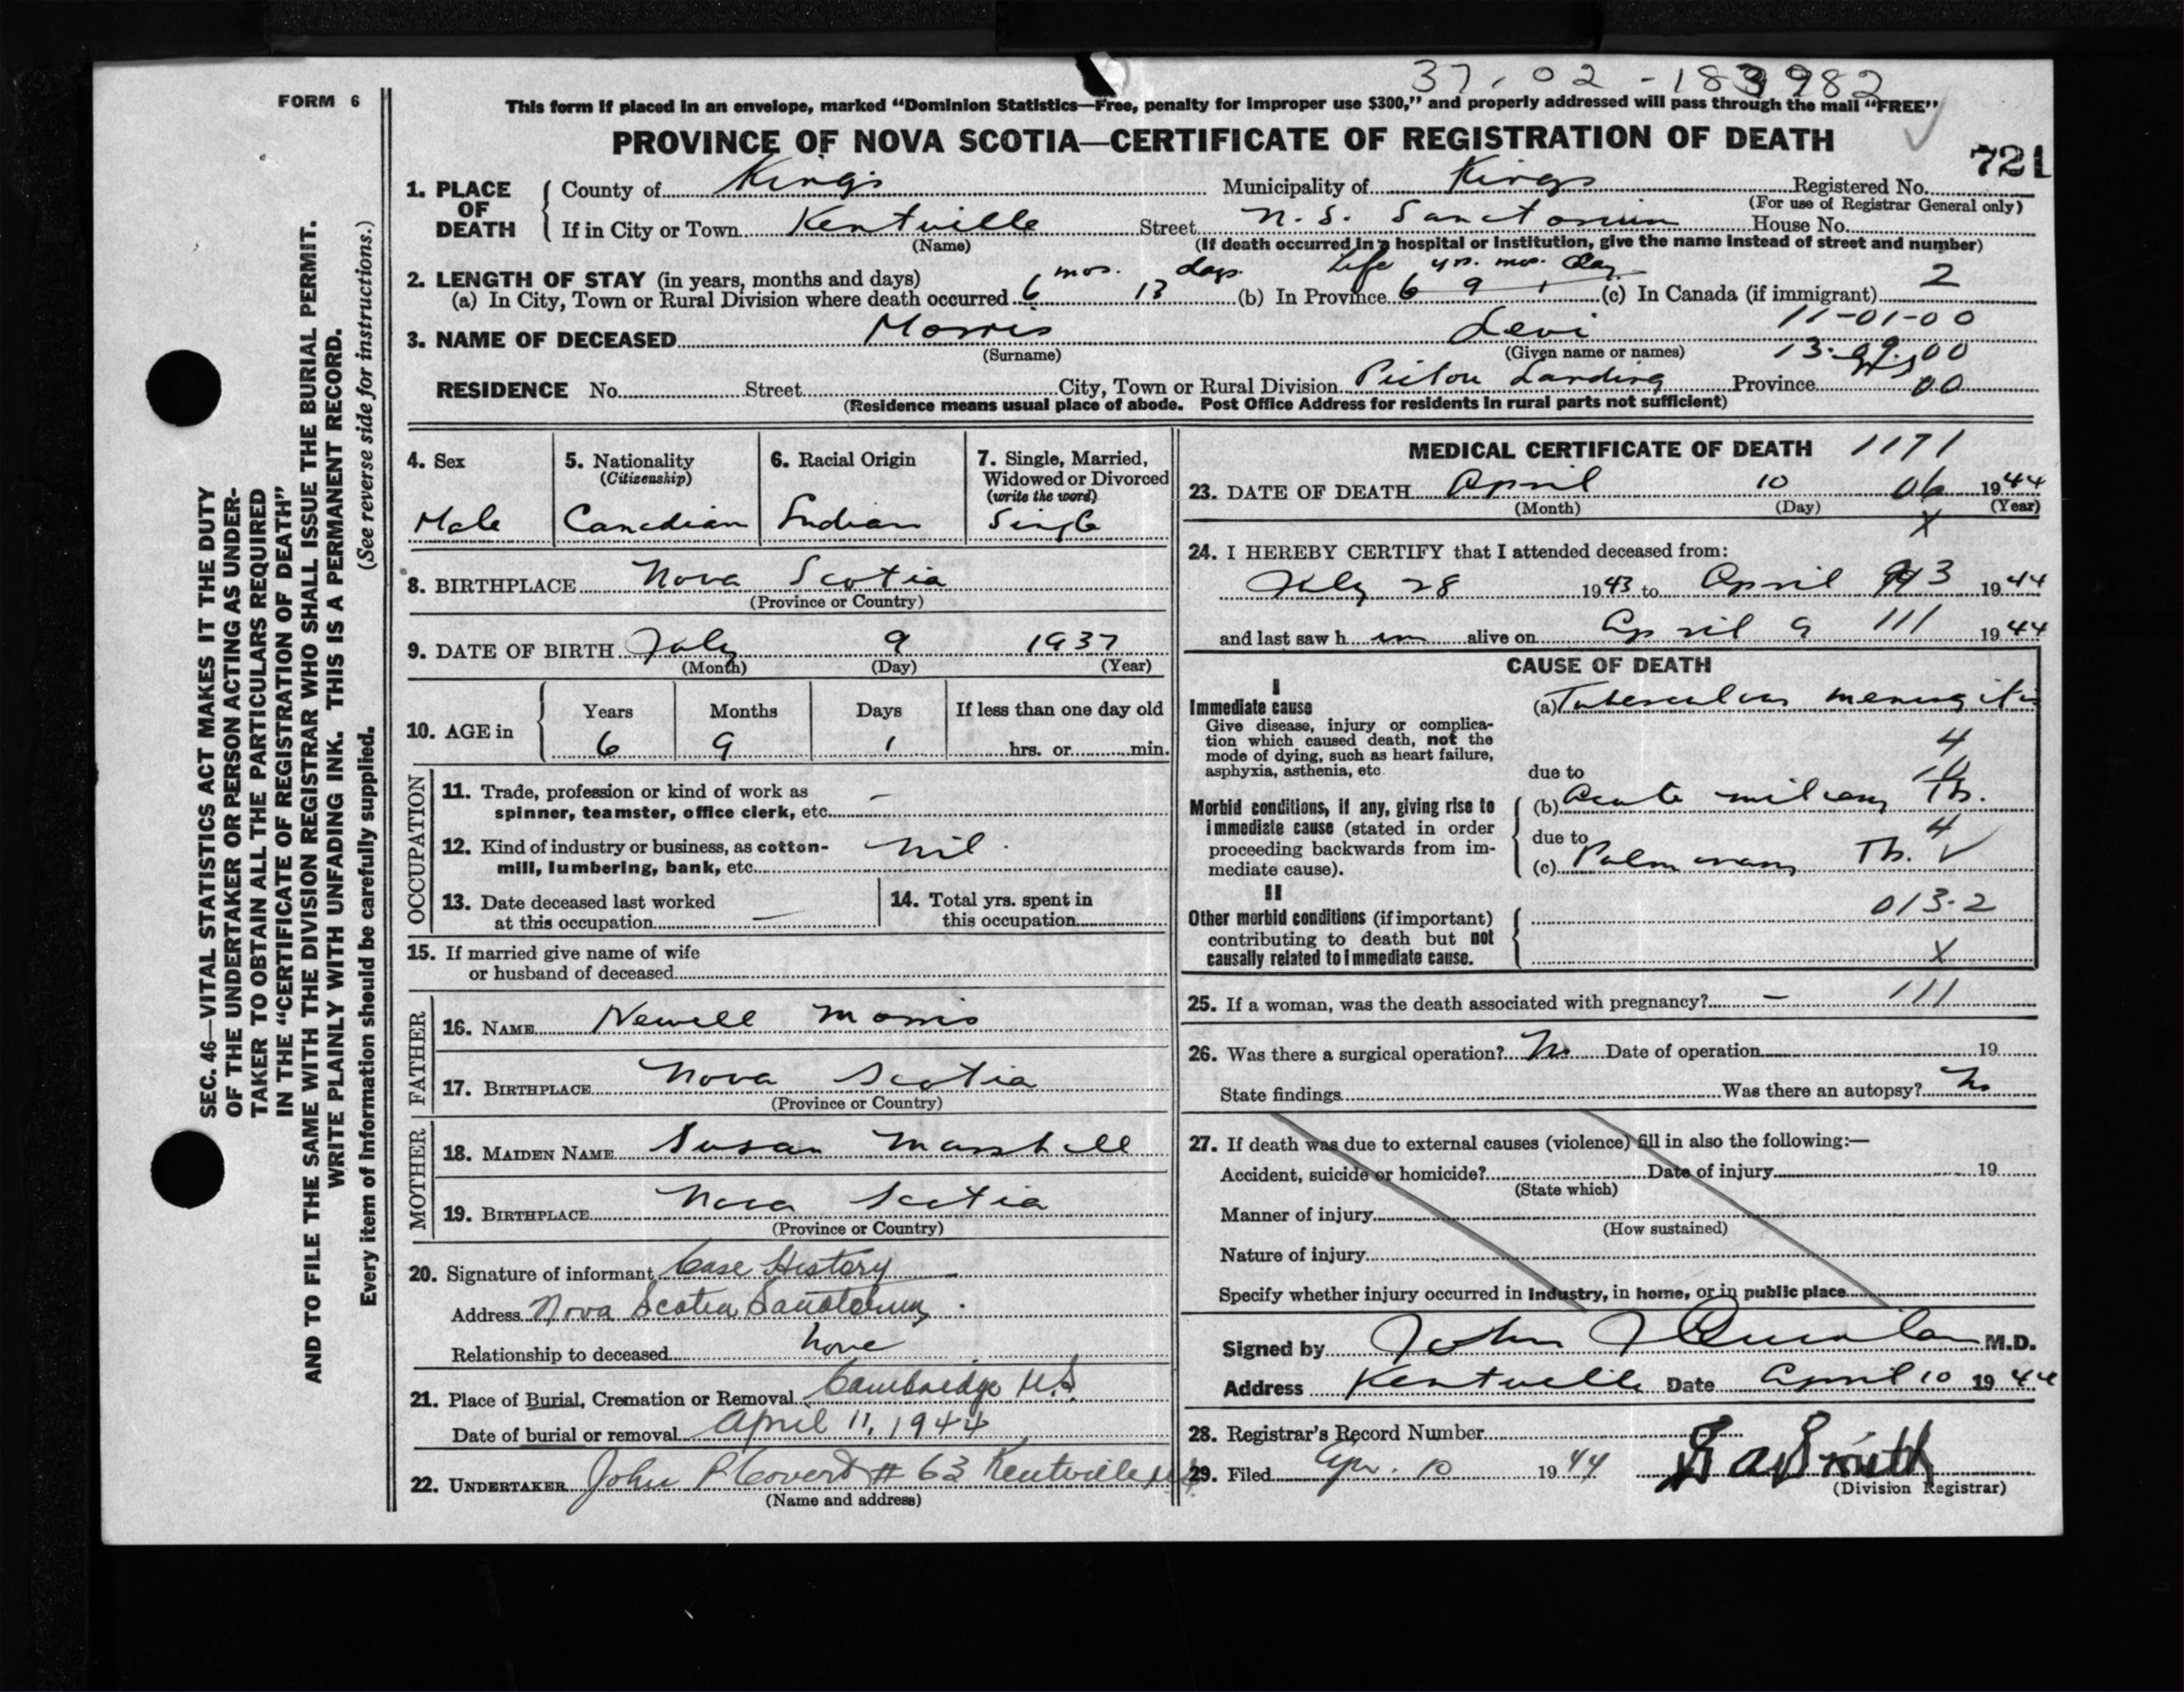 37. 02 - 183982
FORM 6
This form if placed in an envelope, marked "Dominion Statistics—Free, penalty for improper use $300," and properly addressed will pass through the mail "FREE"
PROVINCE OF NOVA SCOTIA—CERTIFICATE OF REGISTRATION OF DEATH
721
1. PLACE OF DEATH
County of Kings Municipality of Kings Registered No.
(For use of Registrar General only)
If in City or Town Kentville Street N. S. Sanatorium House No.
(Name) (If death occurred in a hospital or institution, give the name instead of street and number)
2. LENGTH OF STAY (in years, months and days) mos. days. Life yrs. mos. day
(a) In City, Town or Rural Division where death occurred 6 13 (b) In Province 6 9 1 (c) In Canada (if immigrant) 2
11-01-00
3. NAME OF DECEASED Morris Levi
(Surname) (Given name or names) 13. 00
RESIDENCE No. Street City, Town or Rural Division Pictou Landing Province 00
(Residence means usual place of abode. Post Office Address for residents in rural parts not sufficient)
4. Sex
Male
5. Nationality
(Citizenship)
Canadian
6. Racial Origin
Indian
7. Single, Married,
Widowed or Divorced
(write the word)
Single
8. BIRTHPLACE Nova Scotia
(Province or Country)
9. DATE OF BIRTH July 9 1937
(Month) (Day) (Year)
10. AGE in
Years Months Days If less than one day old
6 9 1 hrs. or min.
OCCUPATION
11. Trade, profession or kind of work as
spinner, teamster, office clerk, etc. —
12. Kind of industry or business, as cotton-
mill, lumbering, bank, etc. nil.
13. Date deceased last worked
at this occupation —
14. Total yrs. spent in
this occupation
15. If married give name of wife
or husband of deceased
FATHER
16. NAME Newell Morris
17. BIRTHPLACE Nova Scotia
(Province or Country)
MOTHER
18. MAIDEN NAME Susan Marshall
19. BIRTHPLACE Nova Scotia
(Province or Country)
20. Signature of informant Case History
Address Nova Scotia Sanatorium.
Relationship to deceased None
21. Place of Burial, Cremation or Removal Cambridge N.S.
Date of burial or removal April 11, 1944
22. UNDERTAKER John P Covert # 63 Kentville N.S
(Name and address)
MEDICAL CERTIFICATE OF DEATH 1171
23. DATE OF DEATH April 10 06 1944
(Month) (Day) (Year)
X
24. I HEREBY CERTIFY that I attended deceased from:
July 28 1943 to April 1944
and last saw h im alive on April 9 111 1944
CAUSE OF DEATH
I
Immediate cause
Give disease, injury or complica-
tion which caused death, not the
mode of dying, such as heart failure,
asphyxia, asthenia, etc.
(a) Tuberculous meningitis
4
due to
Morbid conditions, if any, giving rise to
immediate cause (stated in order
proceeding backwards from im-
mediate cause).
(b) Acute miliary Tb.
4
due to
(c) Pulmonary Tb.
II
Other morbid conditions (if important)
contributing to death but not
causally related to immediate cause.
013-2
X
25. If a woman, was the death associated with pregnancy? — 111
26. Was there a surgical operation? No Date of operation 19
State findings Was there an autopsy? No
27. If death was due to external causes (violence) fill in also the following:—
Accident, suicide or homicide? Date of injury 19
(State which)
Manner of injury
(How sustained)
Nature of injury
Specify whether injury occurred in industry, in home, or in public place
Signed by John J Quinlan M.D.
Address Kentville Date April 10 1944
28. Registrar's Record Number
29. Filed Apr. 10 1944 Smith
(Division Registrar)
SEC. 46—VITAL STATISTICS ACT MAKES IT THE DUTY
OF THE UNDERTAKER OR PERSON ACTING AS UNDER-
TAKER TO OBTAIN ALL THE PARTICULARS REQUIRED
IN THE "CERTIFICATE OF REGISTRATION OF DEATH"
AND TO FILE THE SAME WITH THE DIVISION REGISTRAR WHO SHALL ISSUE THE BURIAL PERMIT.
WRITE PLAINLY WITH UNFADING INK. THIS IS A PERMANENT RECORD.
Every item of information should be carefully supplied. (See reverse side for instructions.)